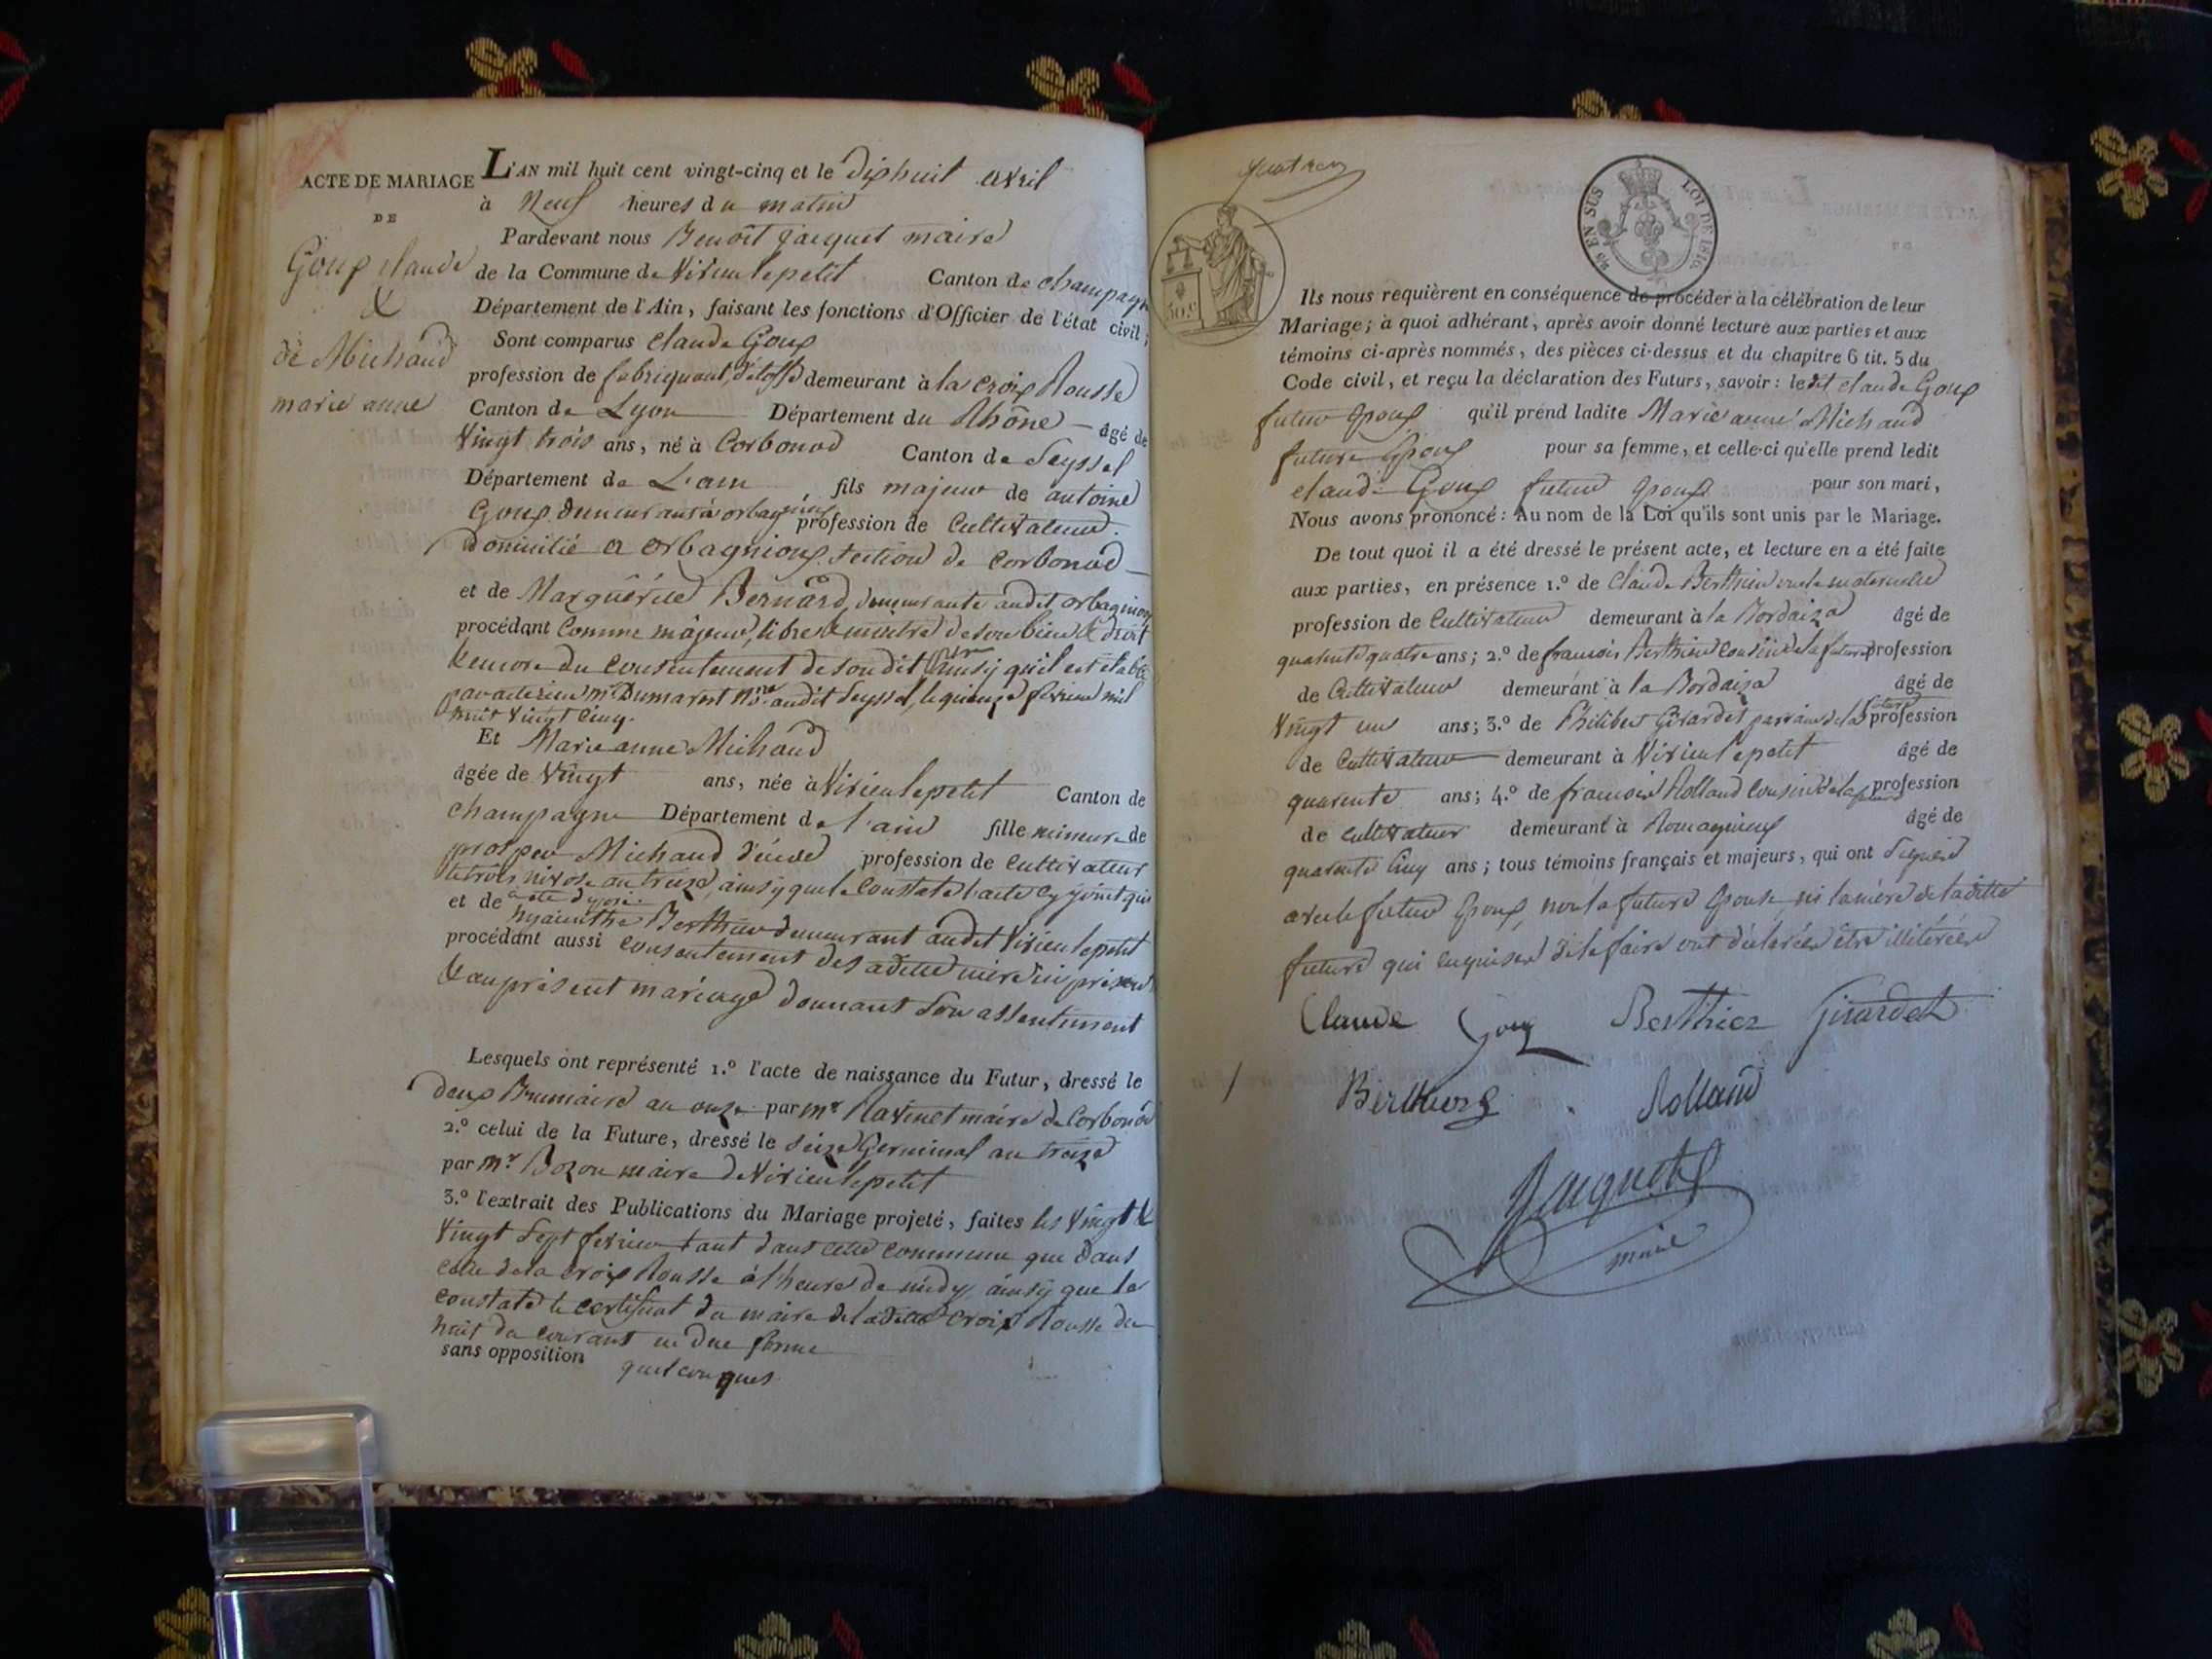 ACTE DE MARIAGE
DE
Goux claude
&
de Michaud
marie anne
L'AN mil huit cent vingt-cinq et le dixhuit avril
à Neuf heures du matin
Pardevant nous Benoît Jacquet maire
de la Commune de Virieu le petit Canton de champagne
Département de l'Ain, faisant les fonctions d'Officier de l'état civil;
Sont comparus claude Goux
profession de fabriquant d'étoffe demeurant à la Croix Rousse
Canton de Lyon Département du Rhône âgé de
Vingt trois ans, né à Corbonod Canton de Seyssel
Département de L'ain fils majeur de antoine
Goux demeurant à orbagnioux profession de Cultivateur
domicilié a orbagnioux section de Corbonod
et de Marguérite Bernard, demeurante audit orbagnioux
procédant Comme majeur, libre & maitre de son bien & droit
& encore du Consentement de son dit père ainsy qu'il est établi
par acte reçu Mr Dumarest Nre audit Seyssel, le quinze fevrier mil
huit Vingt Cinq.
Et Marie anne Michaud
âgée de Vingt ans, née à Virieu le petit Canton de
champagne Département de l'ain fille mineure de
prosper Michaud décédé profession de Cultivateur
le trois nivose an treize, ainsy que le Constate l'acte cy joint qui
a été déposé.
et de hyacinthe Berthier demeurant audit Virieu le petit
procédant aussi Consentement de sa dette mère ici présente
& au présent mariage donnant son assentiment
Lesquels ont représenté 1.º l'acte de naissance du Futur, dressé le
deux Brumaire an onze par mr Ravinet maire de Corbonod
2.º celui de la Future, dressé le seize Germinal an treize
par mr Bozon maire de Virieu le petit
3.º l'extrait des Publications du Mariage projeté, faites les Vingt &
Vingt Sept fevrier tant dans cette commune que dans
celle de la Croix Rousse à l'heure de midy ainsy que le
constate le certificat du maire de la dette Croix Rousse du
huit du courant en due forme
sans opposition quelconques
LOI DE 1816.
EN SUS
50.c
Ils nous requièrent en conséquence de procéder à la célébration de leur
Mariage; à quoi adhérant, après avoir donné lecture aux parties et aux
témoins ci-après nommés, des pièces ci-dessus et du chapitre 6 tit. 5 du
Code civil, et reçu la déclaration des Futurs, savoir: ledit claude Goux
futur Epoux qu'il prend ladite Marie anne Michaud
future Epoux pour sa femme, et celle-ci qu'elle prend ledit
claude Goux futur Epoux pour son mari,
Nous avons prononcé: Au nom de la Loi qu'ils sont unis par le Mariage.
De tout quoi il a été dressé le présent acte, et lecture en a été faite
aux parties, en présence 1.º de Claude Berthier oncle maternelle
profession de Cultivateur demeurant à la Bordaiza âgé de
quarente quatre ans; 2.º de francois Berthier cousin de la future profession
de Cultivateur demeurant à la Bordaiza âgé de
Vingt un ans; 3.º de Philibert Girardet parrain de la future profession
de Cultivateur demeurant à Virieu le petit âgé de
quarente ans; 4.º de francois Rolland Cousin de la future profession
de cultivateur demeurant à Romagnieux âgé de
quarente Cinq ans; tous témoins français et majeurs, qui ont signéé
avec le futur Epoux, non la future Epouse, ni la mère de la ditte
future qui enquises de le faire ont déclarées être illitérées
Claude Goux Berthier Girardet
Berthier Rolland
Jacquet
maire